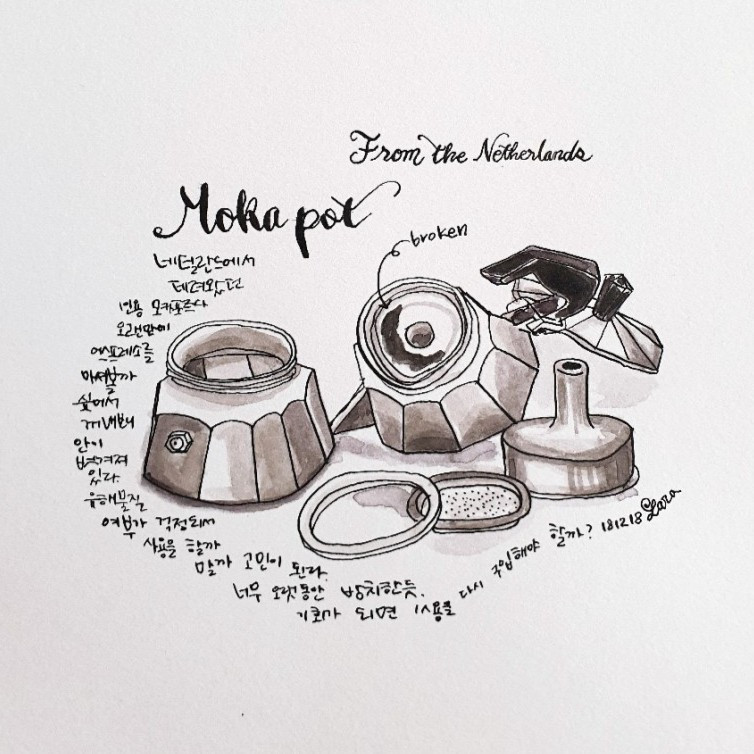 From the Netherlands
Moka pot
broken
네덜란드에서
데려왔던
오랜만에
에스프레소를
마셔볼까
싶어서
꺼내보니
안이
벗겨져
있다.
유해물질
여부가 걱정되서
사용을 할까
말까 고민이 된다.
너무 오랫동안 방치한듯.
기회가 되면 1人용을 다시 구입해야 할까? 181218 Lara